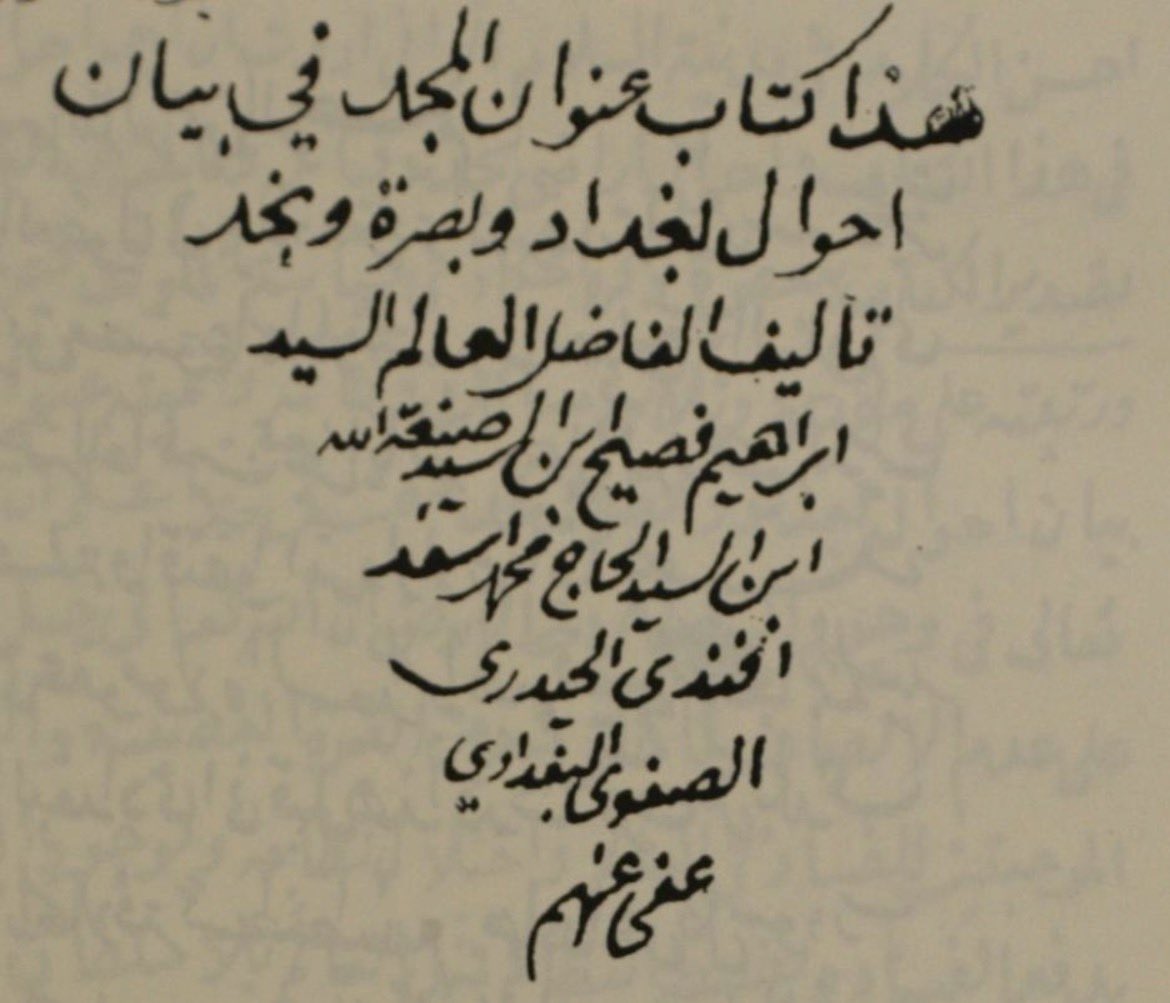 هذا كتاب عنوان المجد في بيان
احوال بغداد وبصرة ونجد
تأليف الفاضل العالم السيد
ابراهيم فصيح ابن السيد صبغة الله
ابن السيد الحاج محمد اسعد
افندى الحيدرى
الصفوى البغدادي
عفى عنهم